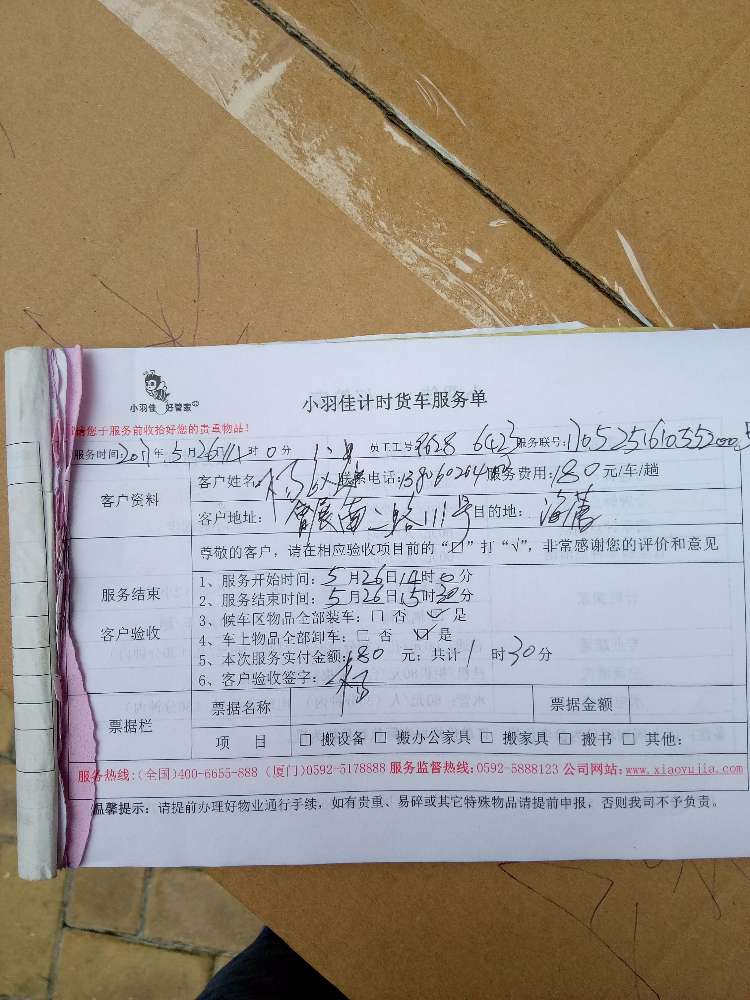 小羽佳 好管家
小羽佳计时货车服务单
请您于服务前收拾好您的贵重物品!
服务时间:2017年5月26日14时0分 员工工号 服务联号:
客户资料
客户姓名: 联系电话: 服务费用:180元/车/趟
客户地址:会展南二路111号 目的地:
尊敬的客户，请在相应验收项目前的“口”打“√”，非常感谢您的评价和意见
服务结束
客户验收
1、服务开始时间:5月26日14时0分
2、服务结束时间:5月26日15时30分
3、候车区物品全部装车:□ 否 ☑ 是
4、车上物品全部卸车:□ 否 ☑ 是
5、本次服务实付金额:180 元；共计1 时30分
6、客户验收签字:杨
票据栏
票据名称 票据金额
项 目 □ 搬设备 □ 搬办公家具 □ 搬家具 □ 搬书 □ 其他:
服务热线:(全国)400-6655-888 (厦门)0592-5178888 服务监督热线:0592-5888123 公司网站:www.xiaoyujia.com
温馨提示: 请提前办理好物业通行手续，如有贵重、易碎或其它特殊物品请提前申报，否则我司不予负责。